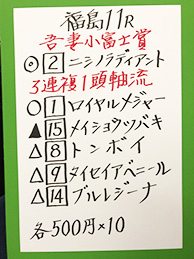 福島11R
吾妻小富士賞
◎2 ニシノラディアント
3連複1頭軸流
○1 ロイヤルメジャー
▲15 メイショウツバキ
△8 トンボイ
△9 タイセイアベニール
△14 ブルレジーナ
各500円×10